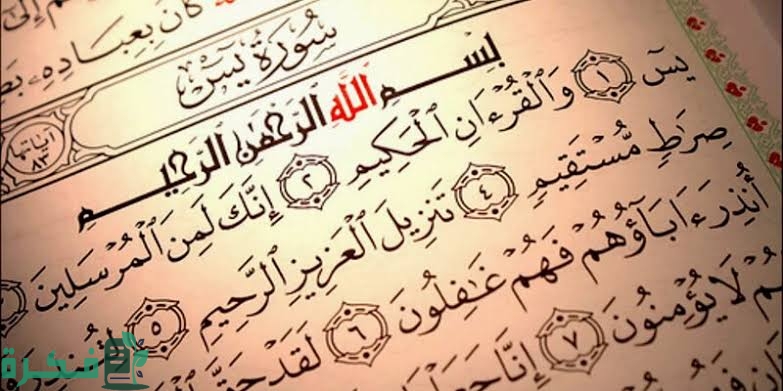 كَانَ بِعِبَادِهِۦ
سُورَةُ يسٓ
ءَايَاتُهَا ٨٣
بِسْمِ ٱللَّهِ ٱلرَّحْمَٰنِ ٱلرَّحِيمِ
يسٓ ١ وَٱلْقُرْءَانِ ٱلْحَكِيمِ ٢ إِنَّكَ لَمِنَ ٱلْمُرْسَلِينَ
صِرَٰطٍ مُّسْتَقِيمٍ ٤ تَنزِيلَ ٱلْعَزِيزِ ٱلرَّحِيمِ ٥
أُنذِرَ ءَابَآؤُهُمْ فَهُمْ غَٰفِلُونَ ٦ لَقَدْ
لَا يُؤْمِنُونَ ٧ إِنَّا
فكرة